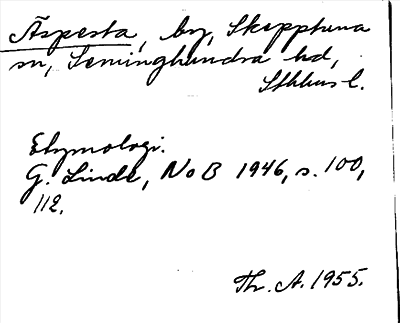 Äspesta, by, Skepptuna
sn, Seminghundra hd,
Sthlms l.
Etymologi.
G. Linde, NoB 1946, s. 100,
112.
Th. A. 1955.